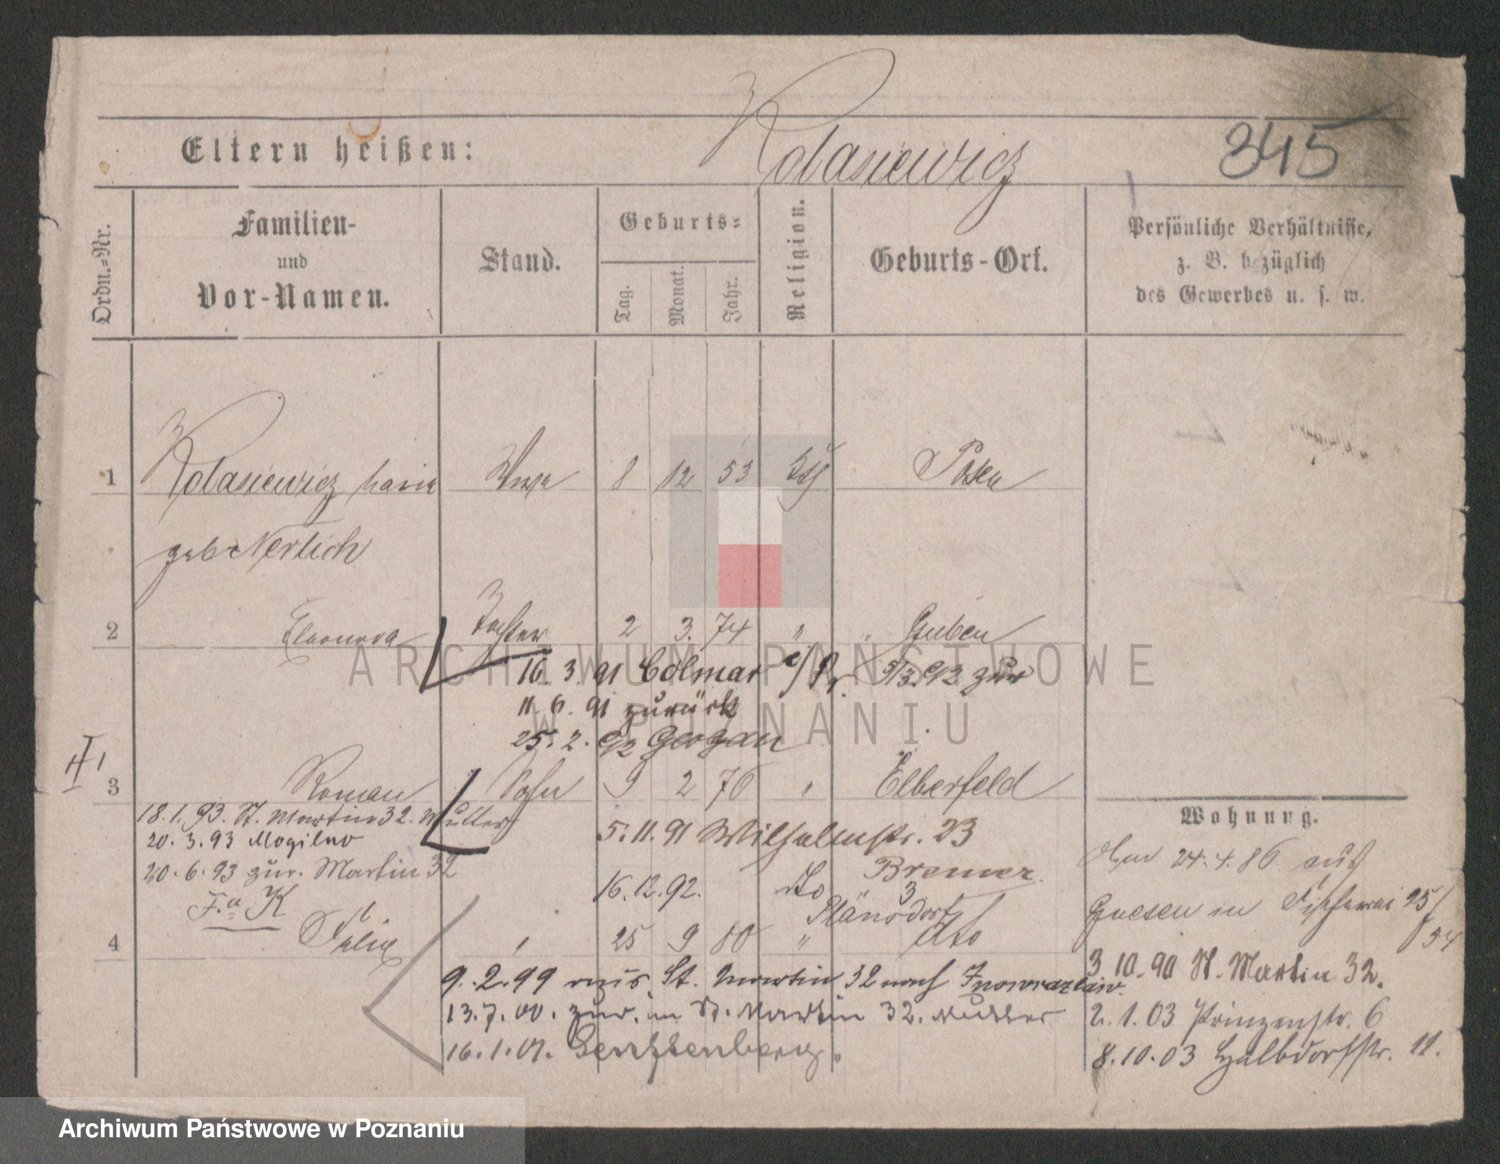 345
Eltern heißen: Kolasiewicz
Ordn.=Nr.
Familien-
und
Vor-Namen.
Stand.
Geburts=
Tag. Monat. Jahr.
Religion.
Geburts-Ort.
Persönliche Verhältnisse,
z. B. bezüglich
des Gewerbes u. s. w.
1 Kolasiewicz Maria Wwe 8 12 53 kth Posen
geb Nerlich
2 Eleonora Tochter 2 3. 74 " Guben
16. 3. 91 Colmar i/Pr. 5/3.92 zur
11. 6. 91 zurück
25. 2. 92 Glogau
3 Roman Sohn 9 2 76 " Elberfeld
18.1.93. St. Martin 32. Mutter
20.3.93 Mogilno
20.6.93 zur. Martin 32
F.a K
5.11.91 Wilhelmstr. 23
Bremer.
16.12.92. dto 3
4 Felix " 25 9 80 " dto
9.2.99 aus St. Martin 32 nach Inowrazlaw.
13.7.00. zur. in St. Martin 32. Mutter
16.1.01. Senftenberg.
Wohnung.
24.4.86 aus
Gnesen in Fischerei 25/
34
3.10.90 St. Martin 32.
2.1.03 Prinzenstr. 6
8.10.03 Halbdorfstr. 11.
ARCHIWUM PAŃSTWOWE
W POZNANIU
Archiwum Państwowe w Poznaniu